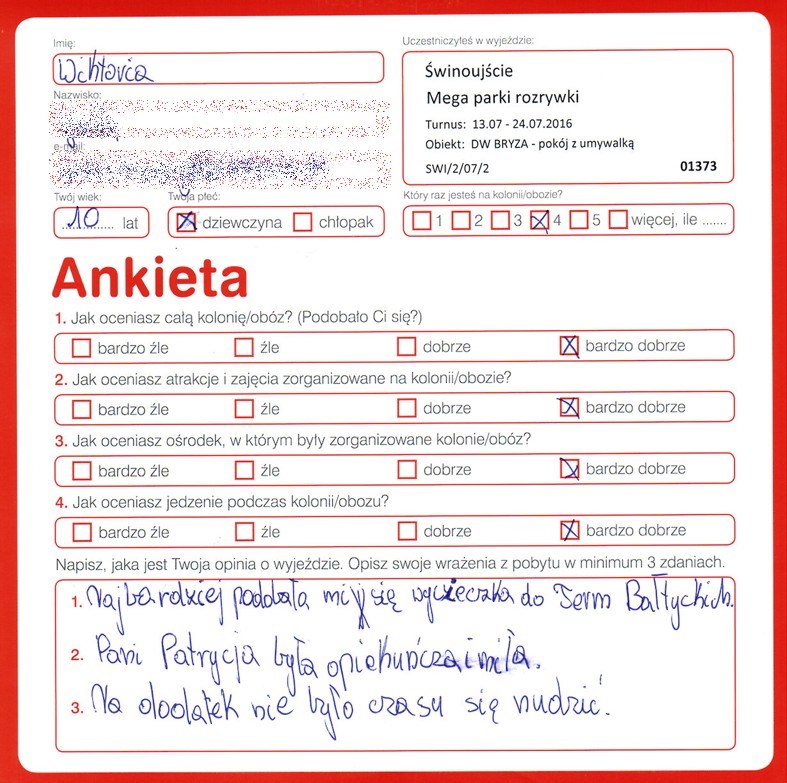 Imię:
Wiktoria
Nazwisko:
e-mail:
Twój wiek:
10 lat
Twoja płeć:
dziewczyna chłopak
Uczestniczyłeś w wyjeździe:
Świnoujście
Mega parki rozrywki
Turnus: 13.07 - 24.07.2016
Obiekt: DW BRYZA - pokój z umywalką
SWI/2/07/2 01373
Który raz jesteś na kolonii/obozie?
1 2 3 4 5 więcej, ile .......
Ankieta
1. Jak oceniasz całą kolonię/obóz? (Podobało Ci się?)
bardzo źle źle dobrze bardzo dobrze
2. Jak oceniasz atrakcje i zajęcia zorganizowane na kolonii/obozie?
bardzo źle źle dobrze bardzo dobrze
3. Jak oceniasz ośrodek, w którym były zorganizowane kolonie/obóz?
bardzo źle źle dobrze bardzo dobrze
4. Jak oceniasz jedzenie podczas kolonii/obozu?
bardzo źle źle dobrze bardzo dobrze
Napisz, jaka jest Twoja opinia o wyjeździe. Opisz swoje wrażenia z pobytu w minimum 3 zdaniach.
1. Najbardziej podobała mi się wycieczka do Term Bałtyckich.
2. Pani Patrycja była opiekuńcza i miła.
3. Na dodatek nie było czasu się nudzić.